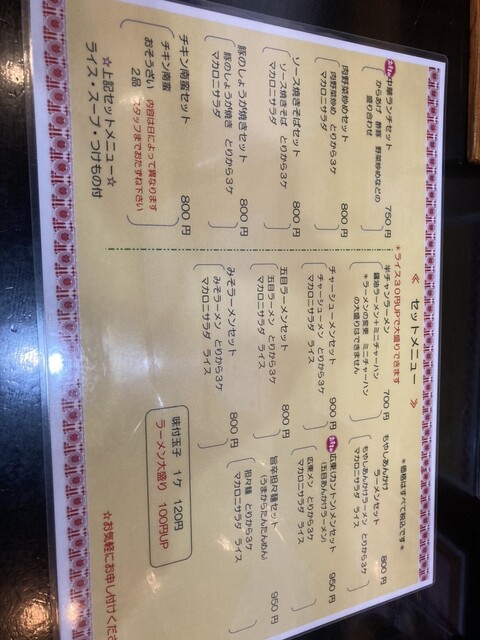 ≪ セットメニュー ≫
＊ライス30円UPで大盛りできます
＊価格はすべて税込です＊
中華ランチセット 750円
からあげ 酢豚 野菜炒めなどの
盛り合わせ
肉野菜炒めセット 800円
肉野菜炒め とりから3ケ
マカロニサラダ
ソース焼きそばセット 800円
ソース焼きそば とりから3ケ
マカロニサラダ
豚のしょうが焼きセット 800円
豚のしょうが焼き とりから3ケ
マカロニサラダ
チキン南蛮セット 800円
チキン南蛮
おそうざい 2品
内容は日によって異なります
スタッフまでおたずね下さい
☆上記セットメニュー☆
ライス・スープ・つけもの付
半チャンラーメン 700円
醤油ラーメン＋ミニチャーハン
＊ラーメンの変更 ミニチャーハン
の大盛りはできません
チャーシューメンセット 900円
チャーシューメン とりから3ケ
マカロニサラダ ライス
五目ラーメンセット 800円
五目ラーメン とりから3ケ
マカロニサラダ ライス
みそラーメンセット 800円
みそラーメン とりから3ケ
マカロニサラダ ライス
もやしあんかけ
ラーメンセット 800円
もやしあんかけラーメン とりから3ケ
マカロニサラダ ライス
広東(カントン)メンセット 950円
(五目あんかけラーメン)
広東メン とりから3ケ
マカロニサラダ ライス
旨辛担々麺セット 950円
(うまからたんたんめん)
担々麺 とりから3ケ
マカロニサラダ ライス
味付玉子 1ケ 120円
ラーメン大盛り 100円UP
☆お気軽にお申し付けくださ